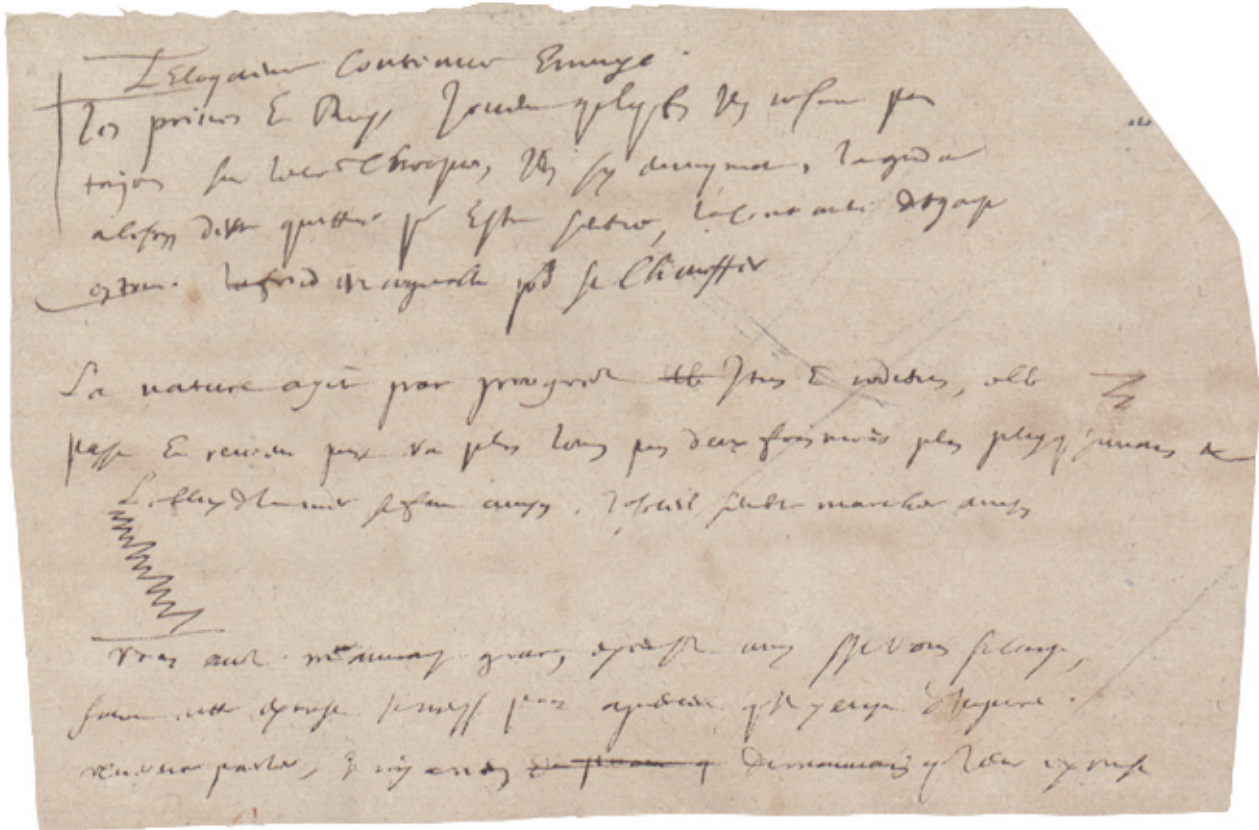 L'Eloquence Continue Ennuye.
Les princes & Roys Jouent qlqfois Ils ne sont pas
toujours sur leurs thrones, Ils sy ennuyent, la grandeur
a besoin d'estre quittee pr Estre sentie, la Continuité degoute
en tout. le froid est agreable pr se Chauffer
La nature agit par progrez Itus & reditus, elle
passe & revient puis va plus loing puis deux fois moins puis plus q jamais &c
Le flux de la mer se fait ainsy. le soleil semble marcher ainsy
Vous avez mauvaise grace, excusez moy s'il vous plaist,
sans cette excuse je n'eusse pas aperceu qu'il y eust d'injure.
reverence parler, Il n'y a rien de mauvais q leur excuse